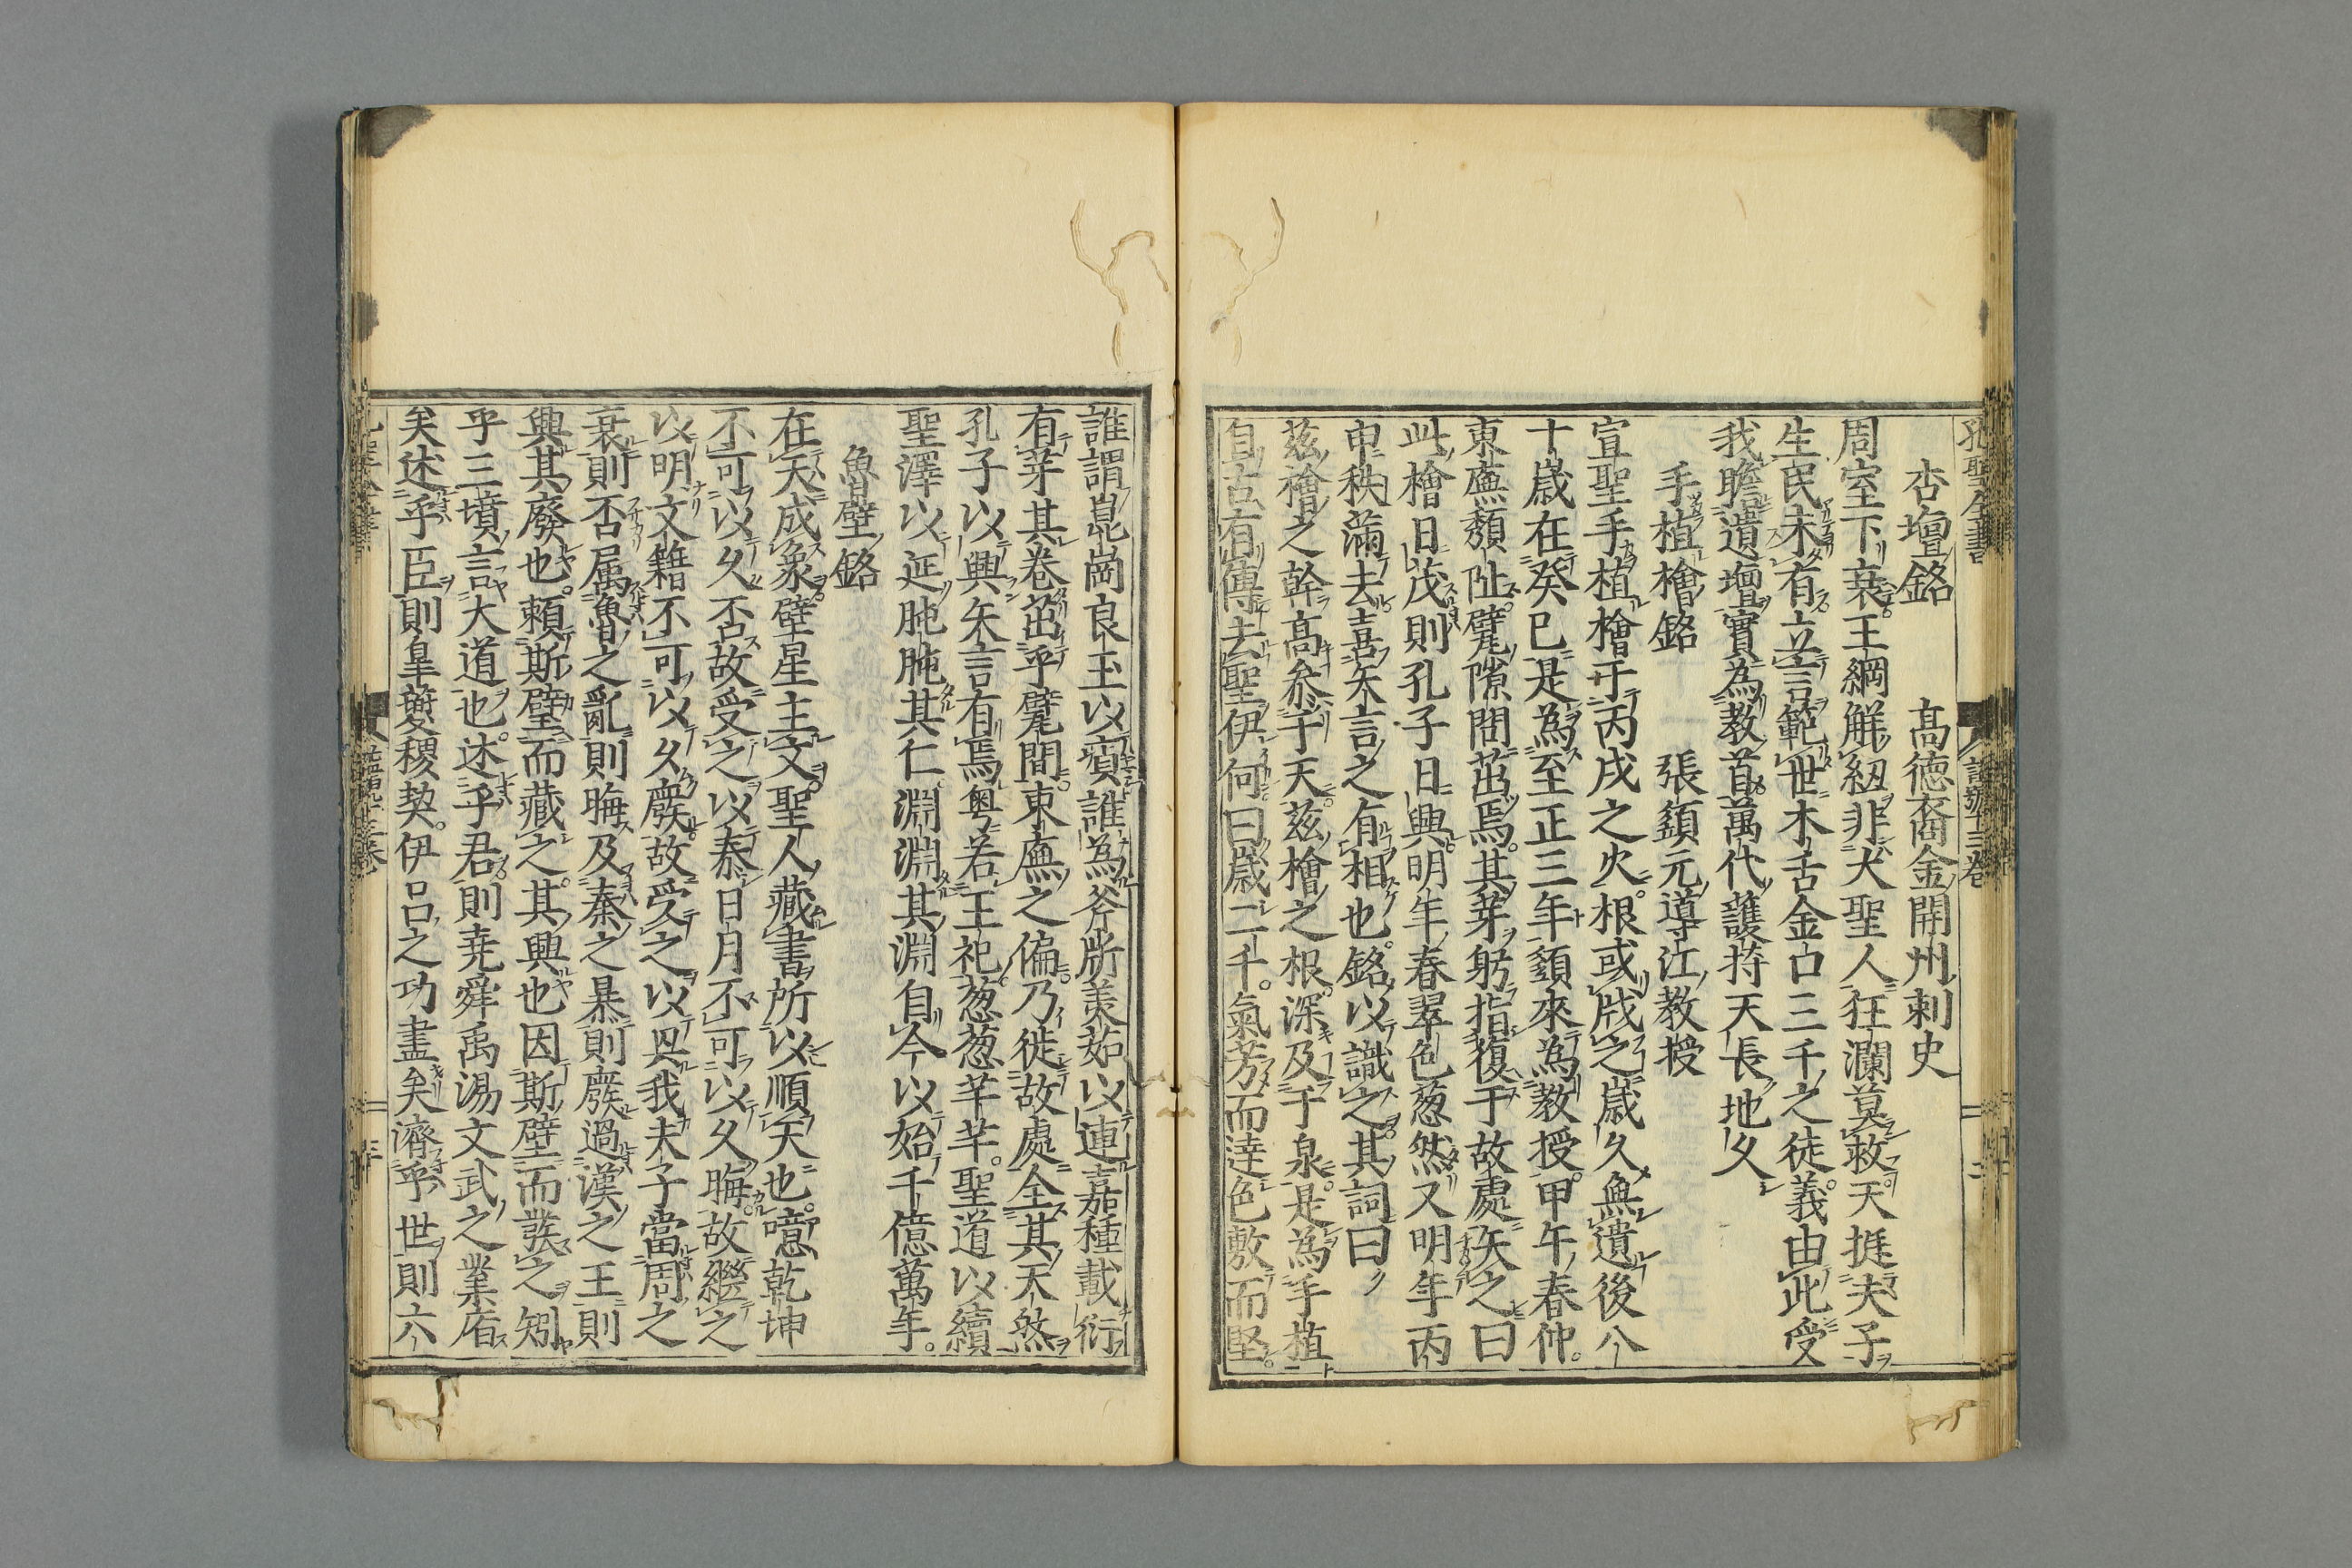 孔聖全書
杏壇銘　高德裔金開州刺史
周室下衰王綱解紐非大聖人狂瀾莫救天挺夫子
生民未有立言範世木舌金口三千之徒義由此受
我瞻遺壇實為教首萬代護持天長地久
手植檜銘　張䇓元導江教授
宣聖手植檜于丙戌之火根或戕之歲久無遺後八
十歲在癸巳是為至正三年䇓來為教授甲午春仲
東廡頹阯甓隙間茁焉其芽躬指復于故處矢之曰
此檜日茂則孔子日興明年春翠色葱然又明年丙
申秩滿去喜矢言之有相也銘以識之其詞曰
茲檜之幹高參于天茲檜之根深及于泉是為手植
自古有傳去聖伊何曰歲二千氣芳而達色敷而堅
誰謂崑岡良玉以瘞誰為斧斨美茹以連嘉種載衍
有芽其卷茁乎甓間東廡之偏乃徙故處全其天然
孔子以興矢言有焉粵若王祀葱葱芊芊聖道以續
聖澤以延肫肫其仁淵淵其淵自今以始千億萬年
魯壁銘
在天成象壁星主文聖人藏書所以順天也噫乾坤
不可以久否故受之以泰日月不可以久晦故繼之
以明文籍不可以久廢故受之以興我夫子當周之
衰則否屬魯之亂則晦及秦之暴則廢過漢之王則
興其廢也賴斯壁而藏之其興也因斯壁而發之矧
乎三墳言大道也述乎君則堯舜禹湯文武之業啇
矣述乎臣則皐夔稷契伊吕之功盡矣濟乎世則六